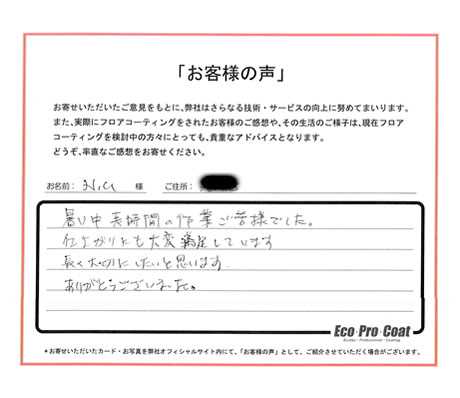 「お客様の声」
お寄せいただいたご意見をもとに、弊社はさらなる技術・サービスの向上に努めてまいります。
また、実際にフロアコーティングをされたお客様のご感想や、その生活のご様子は、現在フロア
コーティングを検討中の方々にとっても、貴重なアドバイスとなります。
どうぞ、率直なご感想をお寄せください。
お名前： N.G 様 ご住所：
暑い中長時間の作業ご苦様でした。
仕上がりにも大変満足しています
長く大切にしたいと思います.
ありがとうございました。
Eco・Pro・Coat
Ecology・Professional・Coating
*お寄せいただいたカード・お写真を弊社オフィシャルサイト内にて、「お客様の声」として、ご紹介させていただく場合がございます。